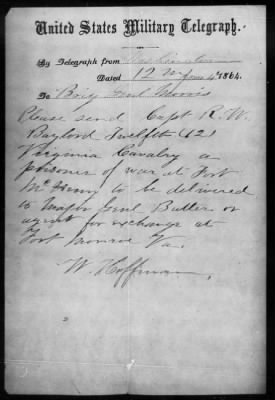 United States Military Telegraph.
By Telegraph from Washington
Dated 12 M June 4th 1864.
To Brig Genl Morris
Please send Capt R. W.
Baylord Twelfth (12)
Virginia Cavalry a
prisoner of war at Fort
McHenry to be delivered
to Major Genl Butler or
agent for exchange at
Fort Monroe Va.
W. Hoffman,